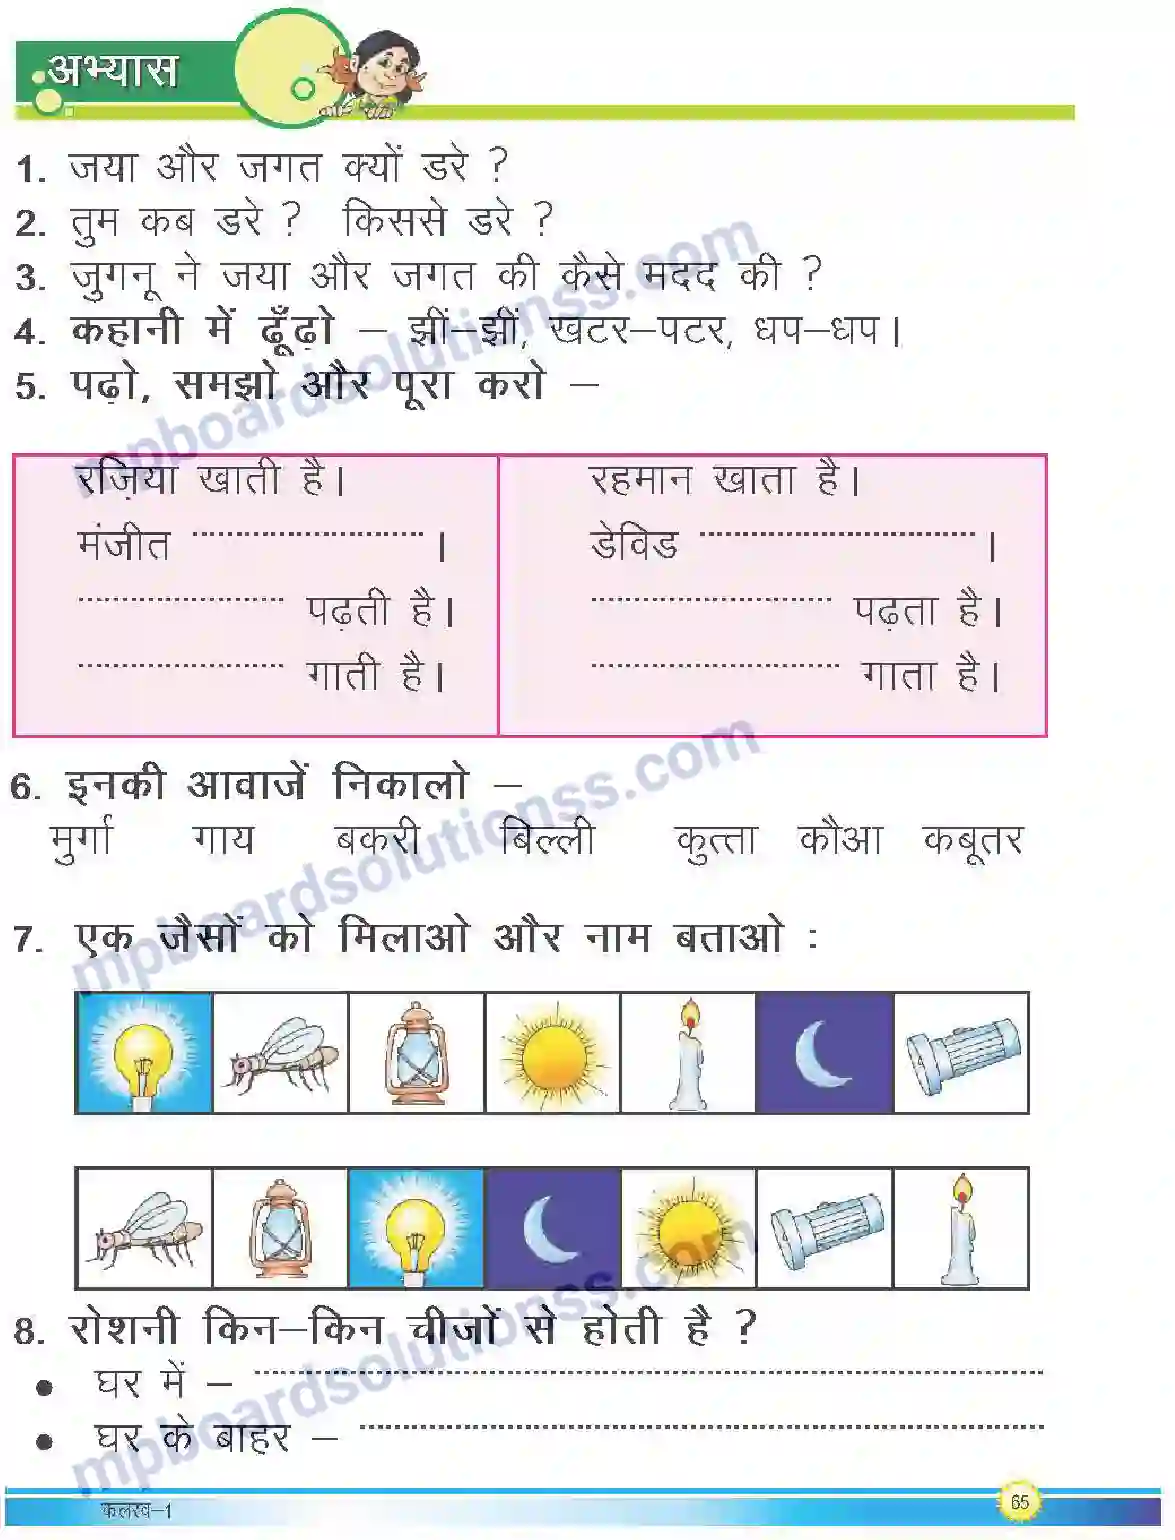 अभ्यास
1. जया और जगत क्यों डरे ?
2. तुम कब डरे ? किससे डरे ?
3. जुगनू ने जया और जगत की कैसे मदद की ?
4. कहानी में ढूँढ़ो – झीं–झीं, खटर–पटर, धप–धप।
5. पढ़ो, समझो और पूरा करो –
रज़िया खाती है।
मंजीत ............................ ।
......................... पढ़ती है।
......................... गाती है।
रहमान खाता है।
डेविड ................................. ।
............................. पढ़ता है।
.............................. गाता है।
6. इनकी आवाजें निकालो –
मुर्गा गाय बकरी बिल्ली कुत्ता कौआ कबूतर
7. एक जैसों को मिलाओ और नाम बताओ :
8. रोशनी किन–किन चीजों से होती है ?
• घर में – ................................................................
• घर के बाहर – ................................................................
कलरव–1
65
mpboardsolutionss.com
mpboardsolutionss.com
mpboardsolutionss.com